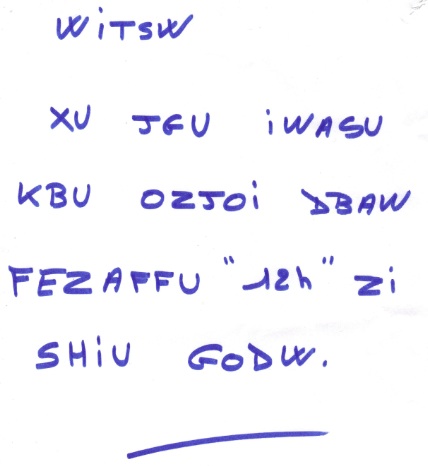 WiTSW
XU JGU iWASU
KBU OZJOi DBAW
FEZAFFU "12h" Zi
SHiU GODW.